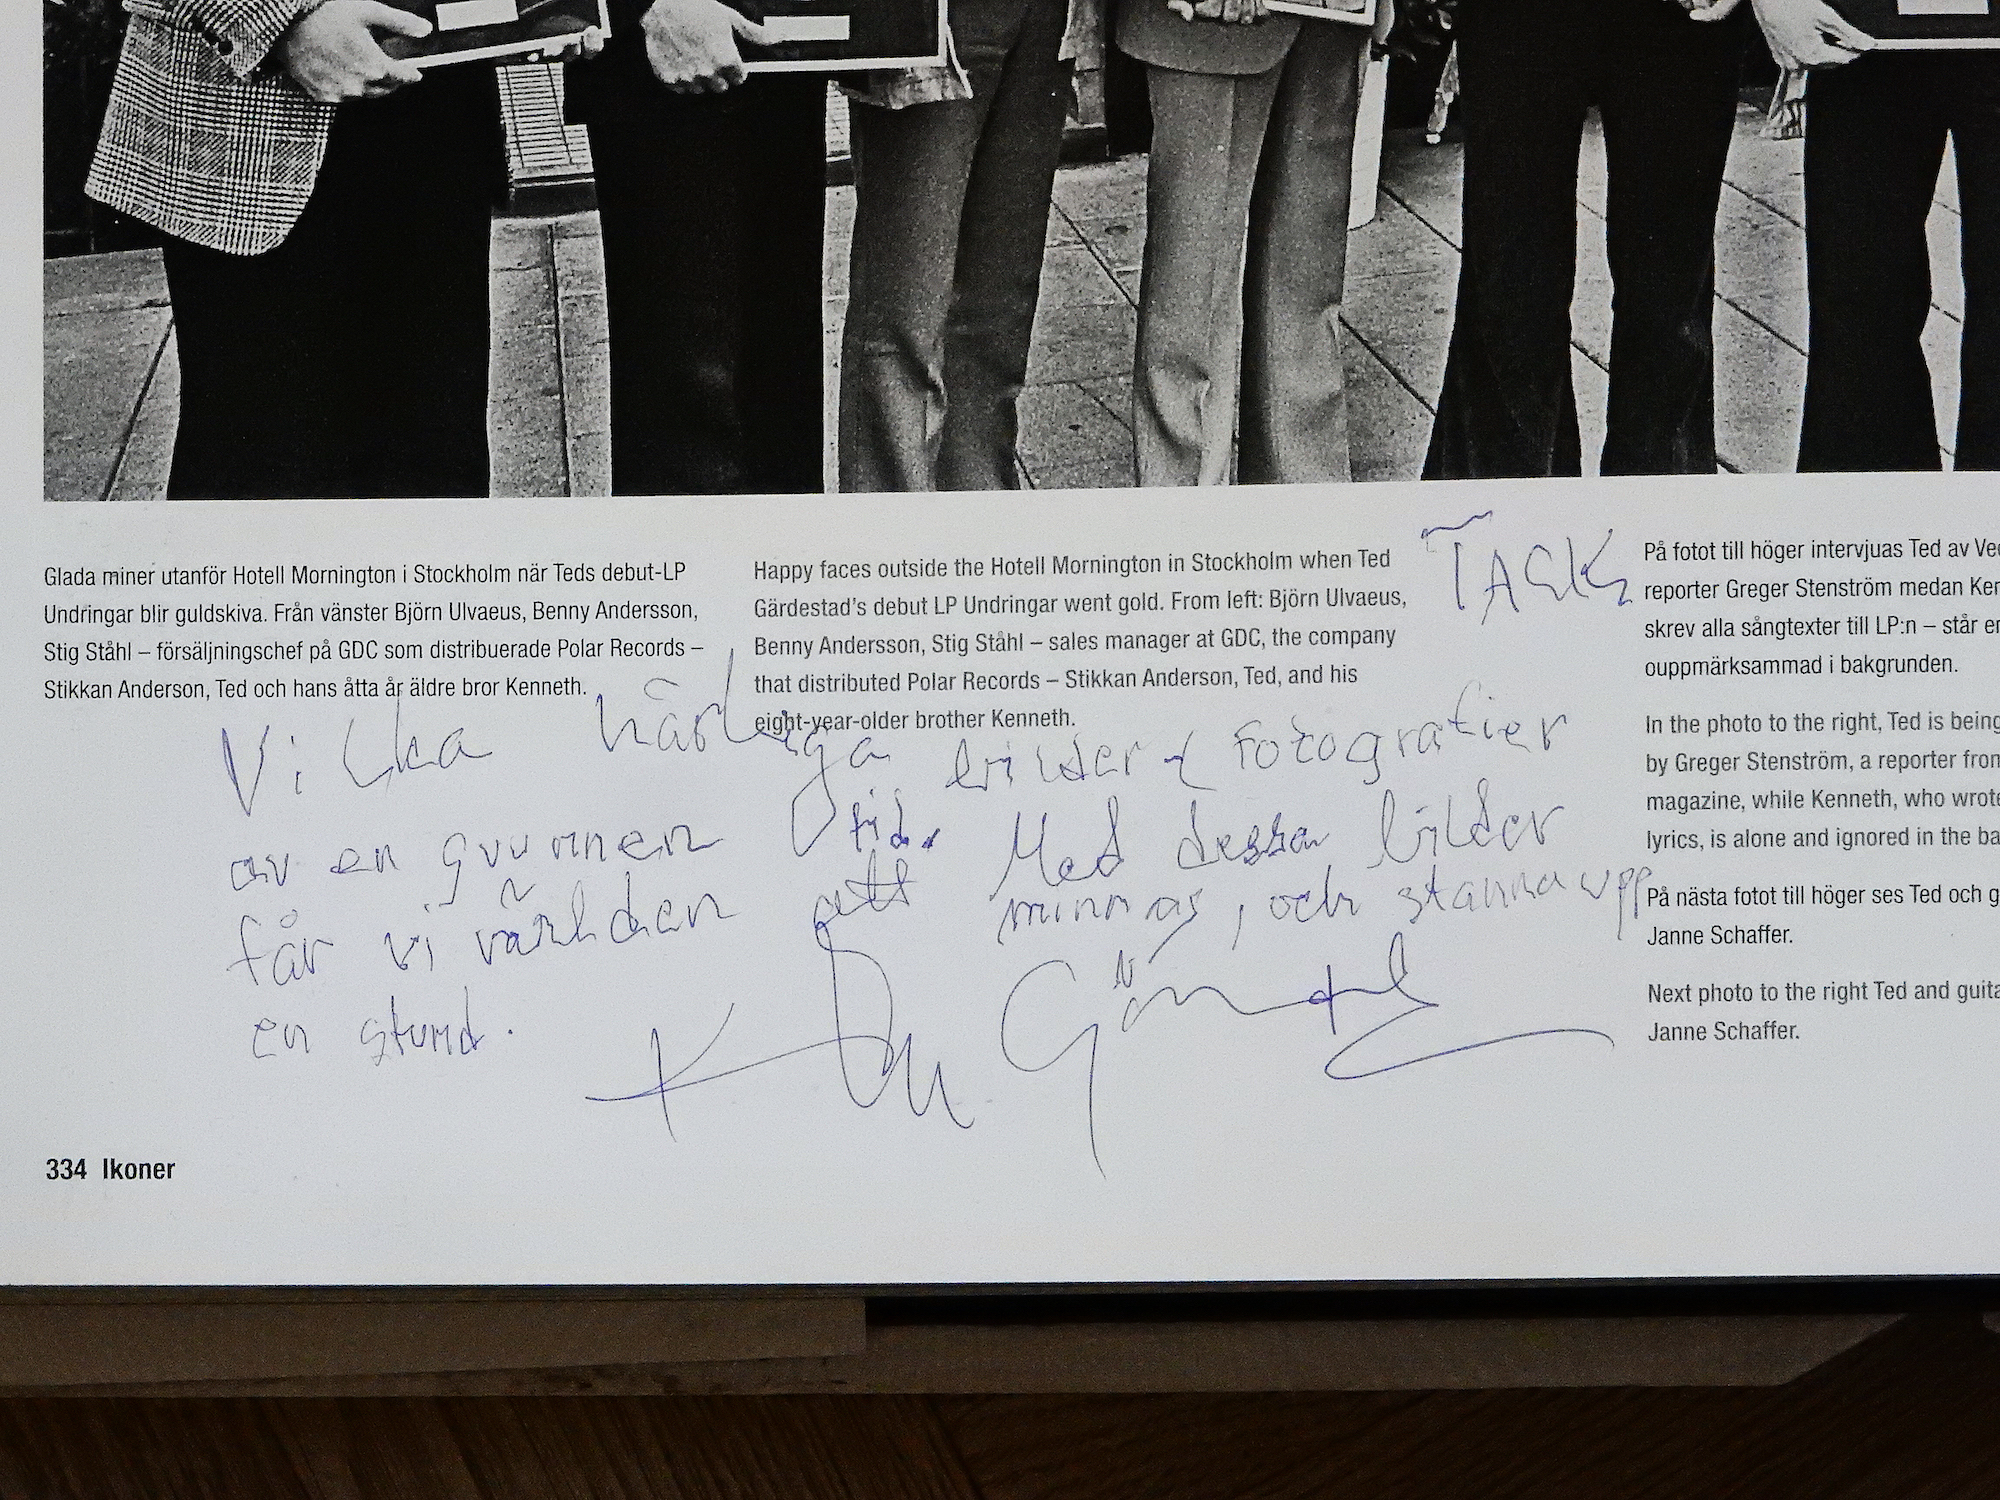 Glada miner utanför Hotell Mornington i Stockholm när Teds debut-LP
Undringar blir guldskiva. Från vänster Björn Ulvaeus, Benny Andersson,
Stig Ståhl – försäljningschef på GDC som distribuerade Polar Records –
Stikkan Anderson, Ted och hans åtta år äldre bror Kenneth.
Happy faces outside the Hotell Mornington in Stockholm when Ted
Gärdestad's debut LP Undringar went gold. From left: Björn Ulvaeus,
Benny Andersson, Stig Ståhl – sales manager at GDC, the company
that distributed Polar Records – Stikkan Anderson, Ted, and his
eight-year-older brother Kenneth.
På fotot till höger intervjuas Ted av Ve
reporter Greger Stenström medan Ken
skrev alla sångtexter till LP:n – står e
ouppmärksammad i bakgrunden.
In the photo to the right, Ted is being
by Greger Stenström, a reporter from
magazine, while Kenneth, who wrote
lyrics, is alone and ignored in the ba
På nästa fotot till höger ses Ted och g
Janne Schaffer.
Next photo to the right Ted and guita
Janne Schaffer.
TACK
Vilka härliga bilder & fotografier
av en svunnen tid. Med dessa bilder
får vi världen att minnas, och stanna upp
en stund.
334 Ikoner